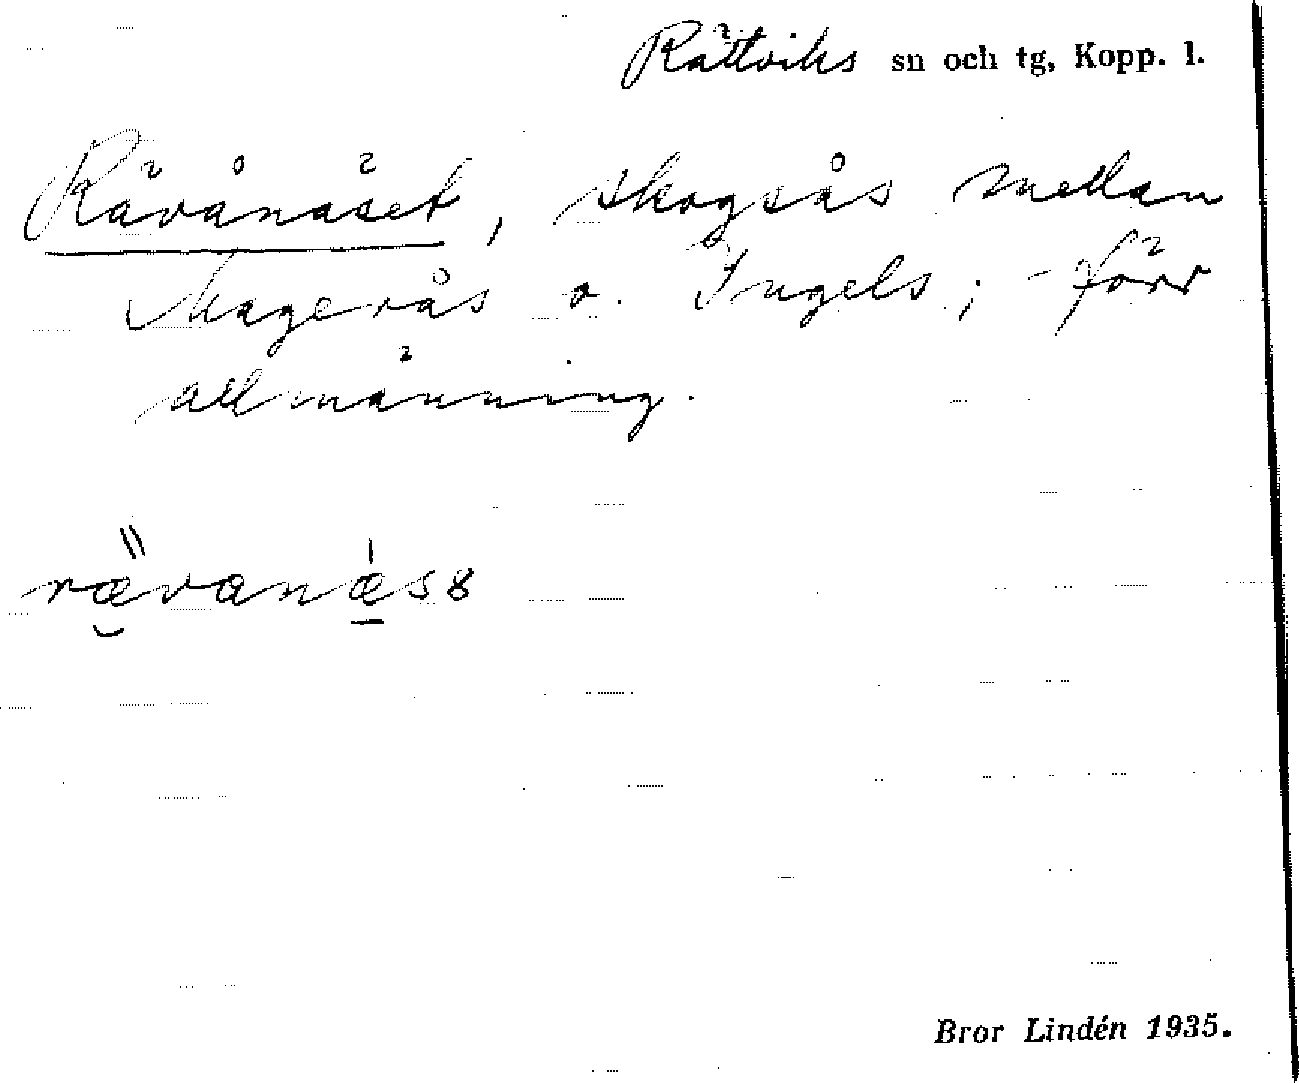 Rättviks sn och tg, Kopp. l.
Rävånäset, skogsås mellan
Skagerås o. Ingels; - förr
allmänning.
rævanæsɞ
Bror Lindén 1935.